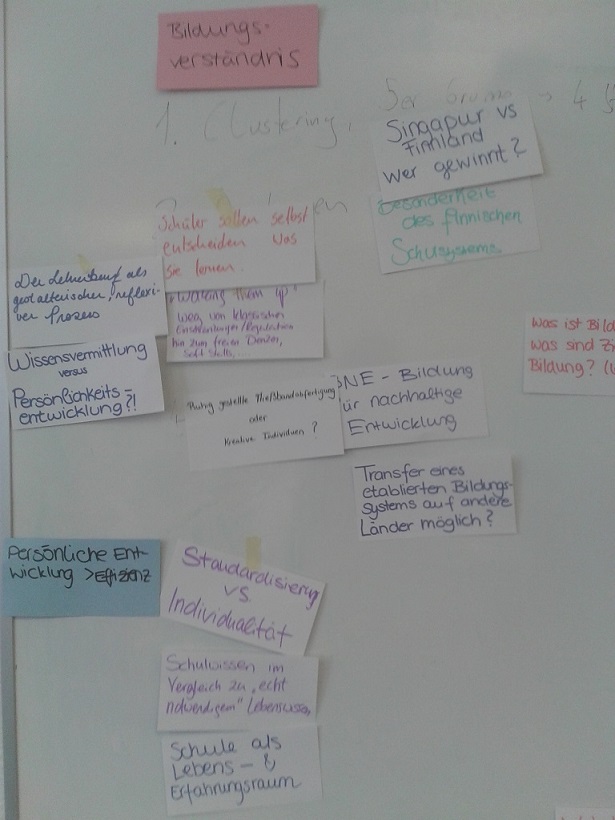 Bildungs-
verständnis
1. Clustering,
5er Gruppe → 4
Singapur vs
Finnland
wer gewinnt?
Besonderheit
des finnischen
Schulsystems
Schüler sollen selbst
entscheiden was
sie lernen.
Der Lehrberuf als
gestalterischer, reflexi-
ver Prozess
weg von klassischen
hin zum freien Denken,
Soft Skills,...
Wissensvermittlung
versus
Persönlichkeits-
entwicklung?!
gestellte Fließbandabfertigung
oder
Kreative Individuen?
BNE - Bildung
für nachhaltige
Entwicklung
Was ist Bild
was sind Zi
Bildung?
Transfer eines
etablierten Bildungs-
systems auf andere
Länder möglich?
Persönliche Ent-
wicklung > Effizienz
Standardisierung
vs.
Individualität
Schulwissen im
Vergleich zu „echt
notwendigem" Lebenswissen
Schule als
Lebens- &
Erfahrungsraum